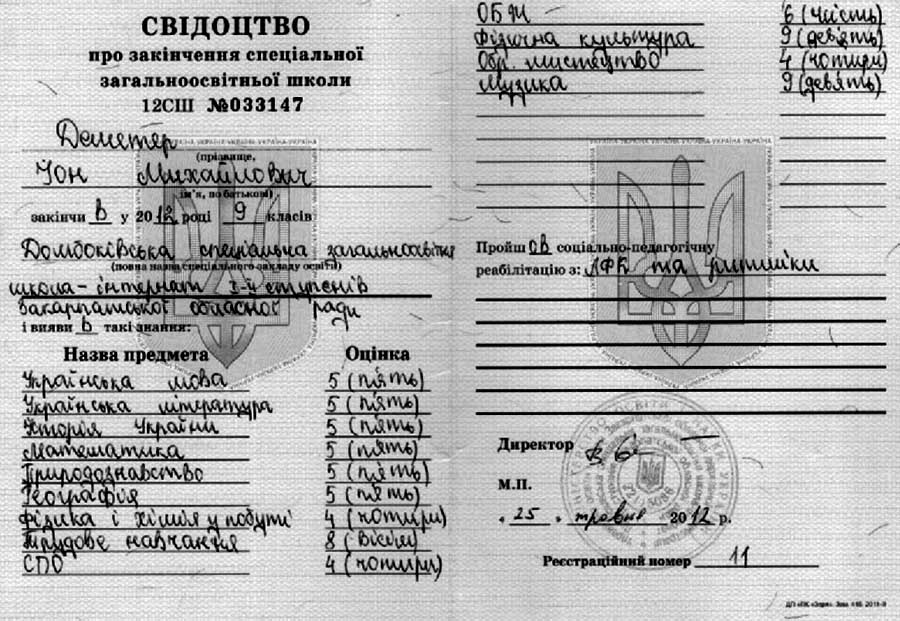 СВІДОЦТВО
про закінчення спеціальної
загальноосвітньої школи
12СШ №033147
Деметер
(прізвище,
Йон Михайлович
ім'я, по батькові)
закінчи в у 2012 році 9 класів
Домбоківська спеціальна загальноосвітня
(повна назва спеціального закладу освіти)
школа-інтернат І-ІІ ступенів
Закарпатської обласної ради
і вияви в такі знання:
Назва предмета Оцінка
Українська мова 5 (п'ять)
Українська література 5 (п'ять)
Історія України 5 (п'ять)
Математика 5 (п'ять)
Природознавство 5 (п'ять)
Географія 5 (п'ять)
Фізика і хімія у побуті 4 (чотири)
Трудове навчання 8 (вісім)
СПО 4 (чотири)
ОБЖ 6 (шість)
Фізична культура 9 (дев'ять)
Обр. мистецтво 4 (чотири)
Музика 9 (дев'ять)
Пройш ов соціально-педагогічну
реабілітацію з: ЛФК та ритміки
Директор
М.П.
« 25 » травня 2012 р.
Реєстраційний номер 11